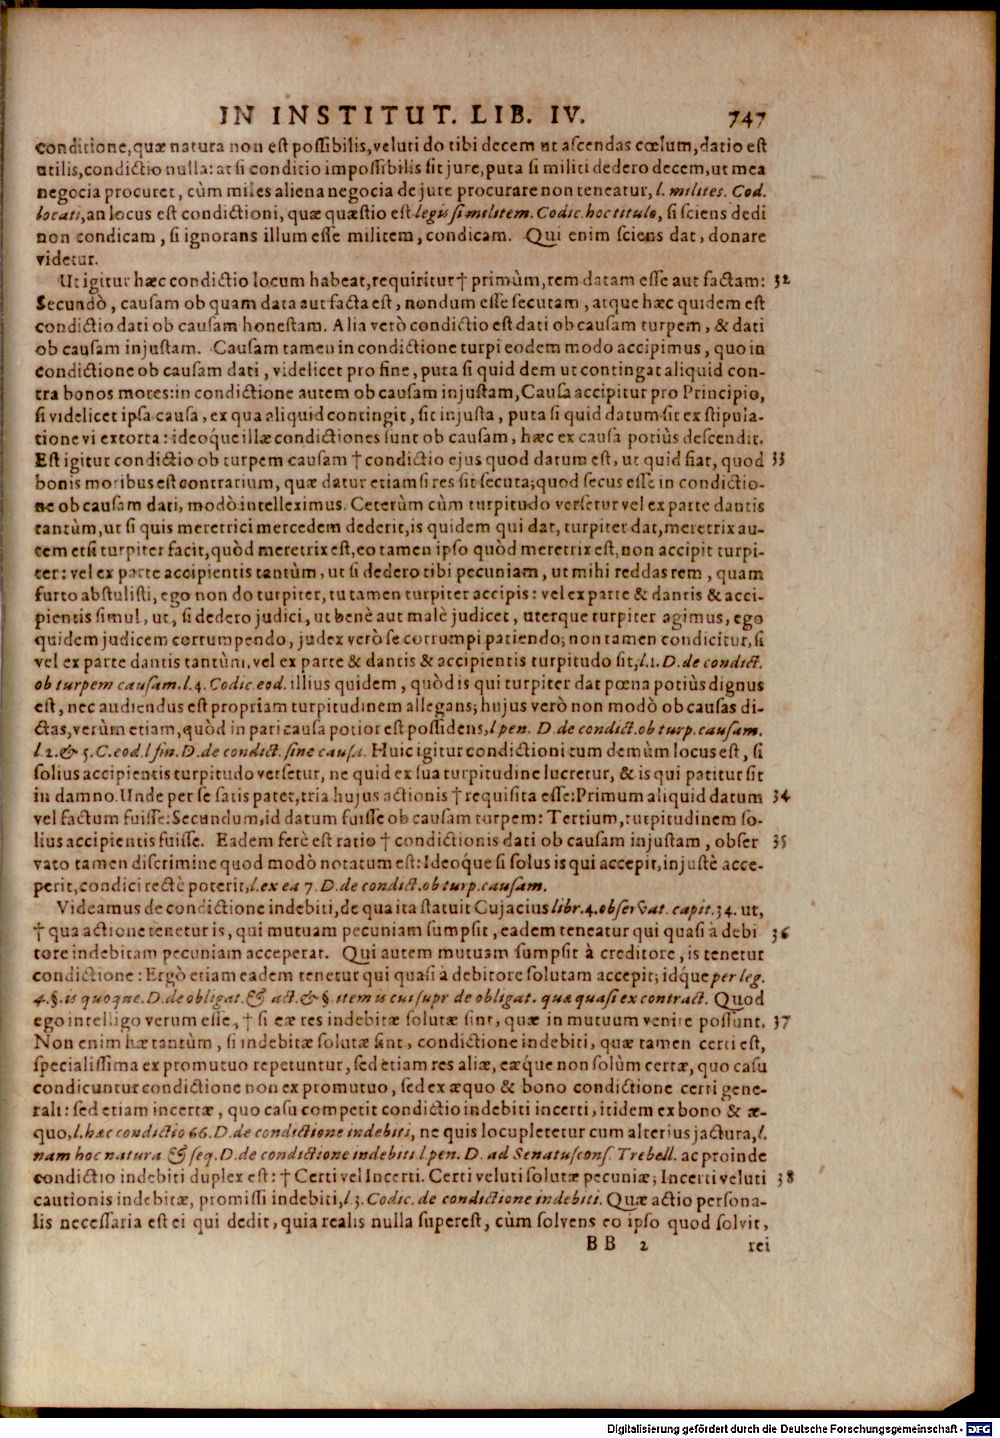 IN INSTITUT. LIB. IV. 747
conditione, quæ natura non est possibilis, veluti do tibi decem ut ascendas cœlum, datio est
utilis, condictio nulla: at si conditio impossibilis sit jure, puta si militi dedero decem, ut mea
negocia procuret, cùm miles aliena negocia de jure procurare non teneatur, l. milites. Cod.
locati, an locus est condictioni, quæ quæstio est legis si militem. Codic. hoc titulo, si sciens dedi
non condicam, si ignorans illum esse militem, condicam. Qui enim sciens dat, donare
videtur.
Ut igitur hæc condictio locum habeat, requiritur † primùm, rem datam esse aut factam: 32
Secundò, causam ob quam data aut facta est, nondum esse secutam, atque hæc quidem est
condictio dati ob causam honestam. Alia verò condictio est dati ob causam turpem, & dati
ob causam injustam. Causam tamen in condictione turpi eodem modo accipimus, quo in
condictione ob causam dati, videlicet pro fine, puta si quid dem ut contingat aliquid con-
tra bonos mores: in condictione autem ob causam injustam, Causa accipitur pro Principio,
si videlicet ipsa causa, ex qua aliquid contingit, sit injusta, puta si quid datum sit ex stipula-
tione vi extorta: ideoque illæ condictiones sunt ob causam, hæc ex causa potiùs descendit.
Est igitur condictio ob turpem causam † condictio ejus quod datum est, ut quid fiat, quod 33
bonis moribus est contrarium, quæ datur etiam si res sit secuta; quod secus esse in condictio-
ne ob causam dati, modò intelleximus. Ceterùm cùm turpitudo versetur vel ex parte dantis
tantùm, ut si quis meretrici mercedem dederit, is quidem qui dat, turpiter dat, meretrix au-
tem etsi turpiter facit, quòd meretrix est, eo tamen ipso quòd meretrix est, non accipit turpi-
ter: vel ex parte accipientis tantùm, ut si dedero tibi pecuniam, ut mihi reddas rem, quam
furto abstulisti, ego non do turpiter, tu tamen turpiter accipis: vel ex parte & dantis & acci-
pientis simul, ut, si dedero judici, ut benè aut malè judicet, uterque turpiter agimus, ego
quidem judicem corrumpendo, judex verò se corrumpi patiendo; non tamen condicitur, si
vel ex parte dantis tantùm, vel ex parte & dantis & accipientis turpitudo sit, l.1. D. de condict.
ob turpem causam. l.4. Codic. eod. illius quidem, quòd is qui turpiter dat pœna potiùs dignus
est, nec audiendus est propriam turpitudinem allegans; hujus verò non modò ob causas di-
ctas, verùm etiam, quòd in pari causa potior est possidens, l pen. D. de condict. ob turp. causam.
l. 2. & 5. C. eod. l fin. D. de condict. sine causa. Huic igitur condictioni tum demùm locus est, si
solius accipientis turpitudo versetur, ne quid ex sua turpitudine lucretur, & is qui patitur sit
in damno. Unde per se satis patet, tria hujus actionis † requisita esse: Primum aliquid datum 34
vel factum fuisse: Secundum, id datum fuisse ob causam turpem: Tertium, turpitudinem so-
lius accipientis fuisse. Eadem ferè est ratio † condictionis dati ob causam injustam, obser 35
vato tamen discrimine quod modò notatum est: Ideoque si solus is qui accepit, injustè acce-
perit, condici rectè poterit, l. ex ea 7. D. de condict. ob turp. causam.
Videamus de condictione indebiti, de qua ita statuit Cujacius libr. 4. observat. capit. 34. ut,
† qua actione tenetur is, qui mutuam pecuniam sumpsit, eadem teneatur qui quasi à debi 36
tore indebitam pecuniam acceperat. Qui autem mutuam sumpsit à creditore, is tenetur
condictione: Ergò etiam eadem tenetur qui quasi à debitore solutam accepit; idque per leg.
4. §. is quoque. D. de obligat. & act. & §. item is cui supr de obligat. quæ quasi ex contract. Quod
ego intelligo verum esse, † si eæ res indebitæ solutæ sint, quæ in mutuum venire possunt. 37
Non enim hæ tantùm, si indebitæ solutæ sint, condictione indebiti, quæ tamen certi est,
specialissima ex promutuo repetuntur, sed etiam res aliæ, eæque non solùm certæ, quo casu
condicuntur condictione non ex promutuo, sed ex æquo & bono condictione certi gene-
rali: sed etiam incertæ, quo casu competit condictio indebiti incerti, itidem ex bono & æ-
quo, l. hæc condictio 66. D. de condictione indebiti, ne quis locupletetur cum alterius jactura, l.
nam hoc natura & seq. D. de condictione indebiti l. pen. D. ad Senatusconf. Trebell. ac proinde
condictio indebiti duplex est: † Certi vel Incerti. Certi veluti solutæ pecuniæ; Incerti veluti 38
cautionis indebitæ, promissi indebiti, l 3. Codic. de condictione indebiti. Quæ actio persona-
lis necessaria est ei qui dedit, quia realis nulla superest, cùm solvens eo ipso quod solvit,
BB 2 rei
Digitalisierung gefördert durch die Deutsche Forschungsgemeinschaft - DFG